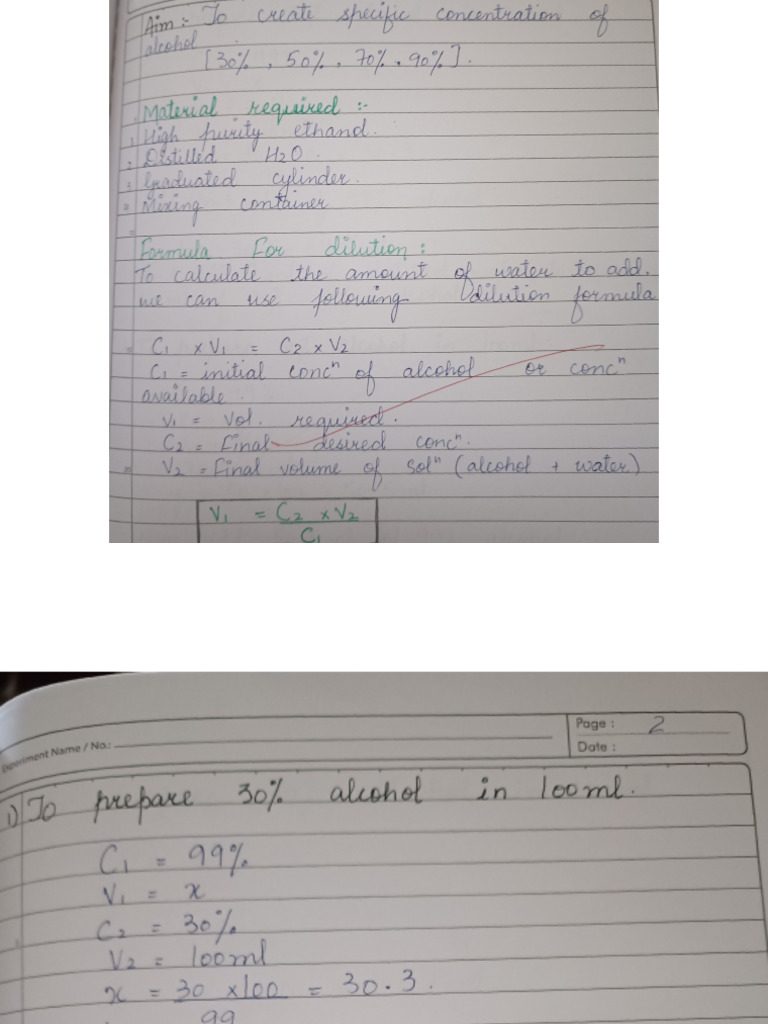 Aim:- To create specific concentration of
alcohol
[30%, 50%, 70%, 90%].
Material required :-
1. High purity ethanol.
2. Distilled H2O.
3. Graduated cylinder.
Mixing container
Formula For dilution:
To calculate the amount of water to add.
we can use following dilution formula
C1 x V1 = C2 x V2
C1 = initial concⁿ of alcohol or concⁿ
available.
V1 = Vol. required.
C2 = Final desired concⁿ.
V2 = Final volume of solⁿ (alcohol + water)
V1 = C2 x V2
C1
Page : 2
Experiment Name / No.:
Date :
1) To prepare 30% alcohol in 100ml.
C1 = 99%
V1 = x
C2 = 30%
V2 = 100ml
x = 30 x100 = 30.3.
99